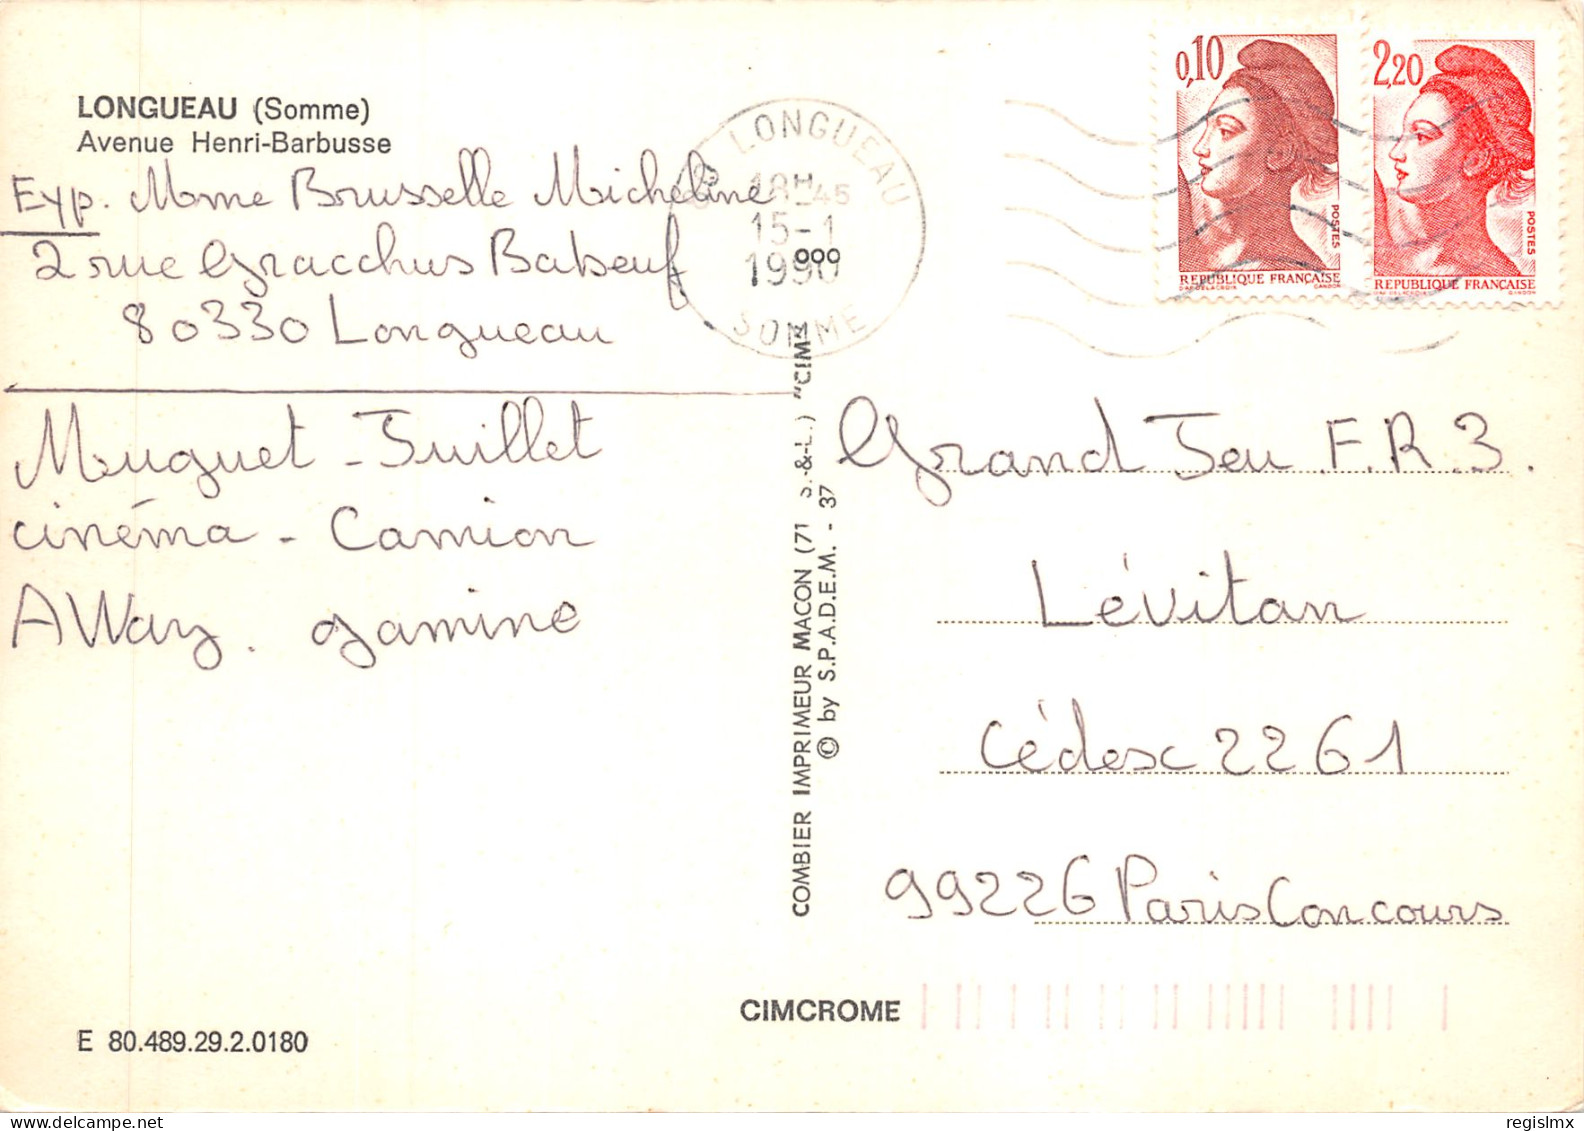 LONGUEAU (Somme)
Avenue Henri-Barbusse
Exp. Mme Brusselle Micheline
2 rue Gracchus Babeuf
80330 Longueau
Muguet - Juillet
cinéma - Camion
AWay. gamine
E 80.489.29.2.0180
LONGUEAU
18H45
15-1
1990
SOMME
0,10
POSTES
REPUBLIQUE FRANÇAISE
D'AP. DELACROIX GANDON
2,20
POSTES
REPUBLIQUE FRANÇAISE
D'AP. DELACROIX GANDON
COMBIER IMPRIMEUR MACON (71 S.-&-L.) "CIM"
© by S.P.A.D.E.M. - 37
Grand Jeu F.R.3.
Lévitan
Cédesc 2261
99226 Paris Concours
CIMCROME
regislmx